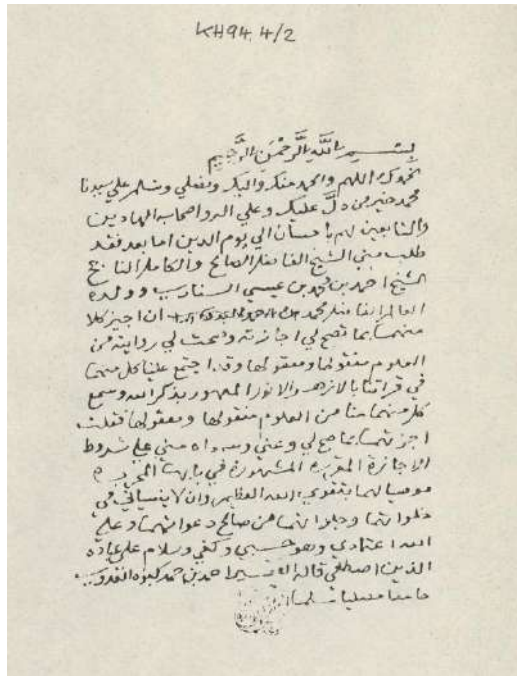 KH94.4/2
بسم الله الرحمن الرحيم
نحمدك اللهم والحمد منك واليك ونصلي ونسلم علي سيدنا
محمد خير من دل عليك وعلي اله واصحابه الهادين
والتابعين لهم باحسان الي يوم الدين اما بعد فقد
طلب مني الشيخ الفاضل الصالح والكامل الناجح
الشيخ احمد بن محمد بن عيسي السنار ووولده
العالم الفاضل محمد ان اجيز كلا
منهما بما تصح لي اجازته وصحت لي روايته من
العلوم منقولها ومعقولها وقد اجتمع علينا كل منهما
في قراتنا بالازهر والانور المعمور بذكر الله وسمع
كل منهما منا من العلوم منقولها ومعقولها فقلت
اجزتهما بما صح لي وعني مني علي شروط
الاجازة المقررة المشهورة في بابها المحررة
موصيا لهما بتقوي الله العظيم وان لا ينسياني في
خلواتهما وجلواتهما من صالح دعواتهما وعلي
الله اعتمادي وهو حسبي وكفي وسلام علي عباده
الذين اصطفي قاله الفقير احمد بن محمد
حامدا مصليا مسلما